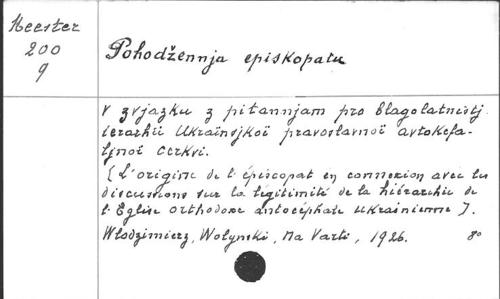 Meester
200
9
Pohodžennja episkopatu
v zvjazku z pitannjam pro blagolatnistj
ierarhii Ukraïnsjkoï pravoslavnoï avtokefa-
ljnoï cerkvi.
[L'origine de l'épiscopat en connexion avec les
discussions sur la légitimité de la hiérarchie de
l'Eglise orthodoxe autocéphale ukrainienne].
Włodzimierz, Wołynski, Na Varti, 1926. 8º